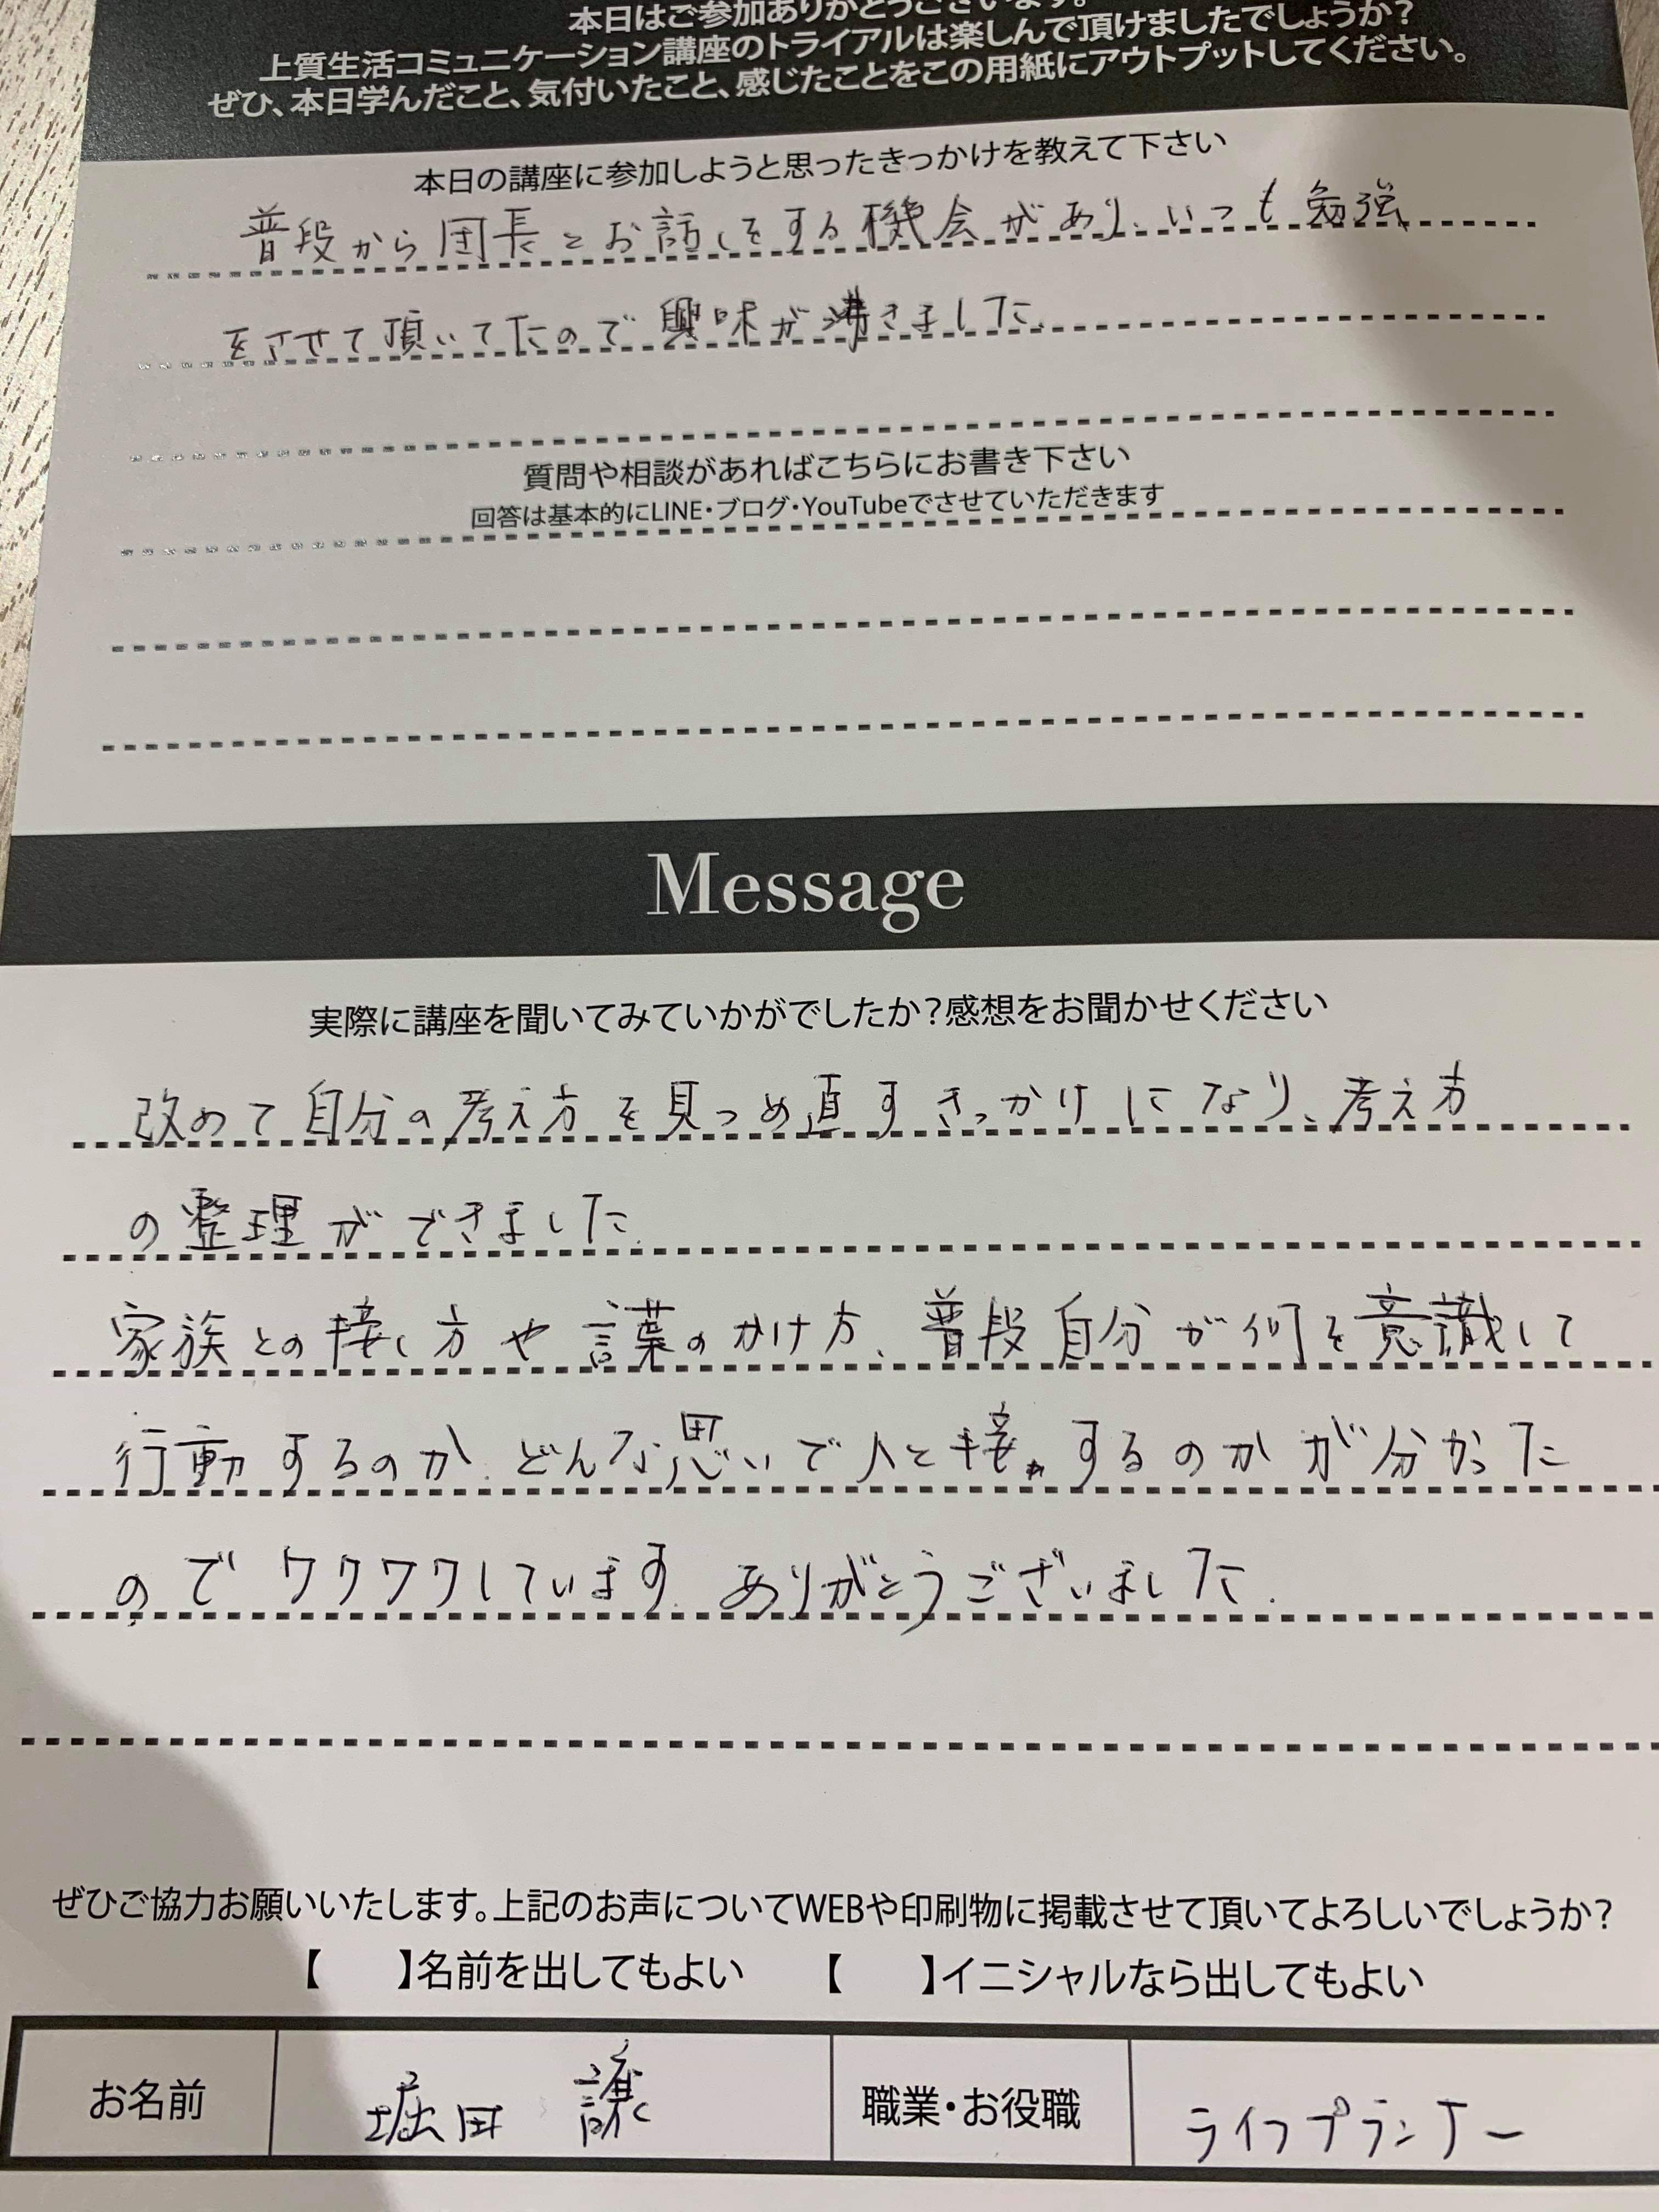 本日はご参加ありがとうございます。
上質生活コミュニケーション講座のトライアルは楽しんで頂けましたでしょうか?
ぜひ、本日学んだこと、気付いたこと、感じたことをこの用紙にアウトプットしてください。
本日の講座に参加しようと思ったきっかけを教えて下さい
普段から団長とお話しをする機会があり、いつも勉強
をさせて頂いてたので興味が沸きました。
質問や相談があればこちらにお書き下さい
回答は基本的にLINE・ブログ・YouTubeでさせていただきます
Message
実際に講座を聞いてみていかがでしたか?感想をお聞かせください
改めて自分の考え方を見つめ直すきっかけになり、考え方
の整理ができました。
家族との接し方や言葉のかけ方、普段自分が何を意識して
行動するのか、どんな思いで人と接するのかが分かった
のでワクワクしています。ありがとうございました。
ぜひご協力お願いいたします。上記のお声についてWEBや印刷物に掲載させて頂いてよろしいでしょうか?
【 】名前を出してもよい 【 】イニシャルなら出してもよい
お名前 堀田 譲 職業・お役職 ライフプランナー